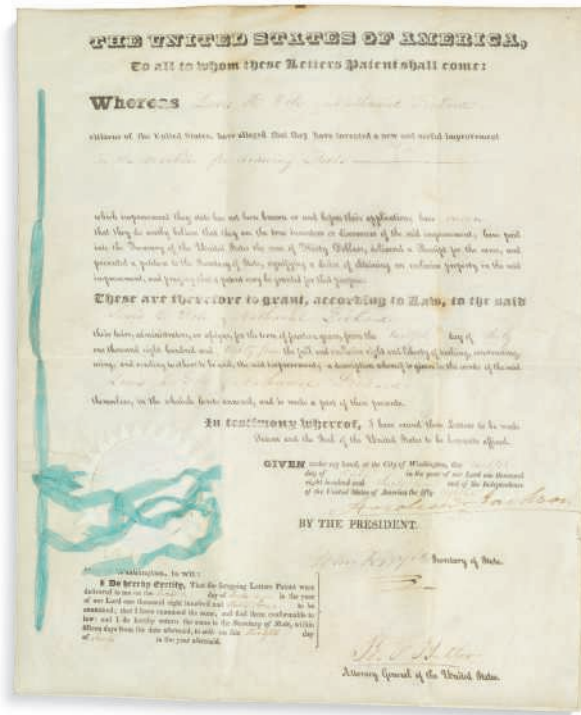 THE UNITED STATES OF AMERICA,
To all to whom these Letters Patent shall come:
Whereas
citizens of the United States, have alleged that they have invented a new and useful improvement
which improvement they state has not been known or used before their application; have
that they do verily believe that they are the true inventors or discoverers of the said improvement; have paid
into the Treasury of the United States the sum of Thirty Dollars, delivered a Receipt for the same, and
presented a petition to the Secretary of State, signifying a desire of obtaining an exclusive property in the said
improvement, and praying that a patent may be granted for that purpose.
These are therefore to grant, according to Law, to the said
their heirs, administrators, or assigns, for the term of fourteen years, from the day of
one thousand eight hundred and thirty four the full and exclusive right and liberty of making, constructing,
using, and vending to others to be used, the said improvement; a description whereof is given in the words of the said
themselves, in the schedule hereto annexed, and is made a part of these presents.
In testimony whereof, I have caused these Letters to be made
Patent and the Seal of the United States to be hereunto affixed.
GIVEN under my hand, at the City of Washington, this
day of in the year of our Lord one thousand
eight hundred and and of the Independence
of the United States of America the fifty
Andrew Jackson
BY THE PRESIDENT.
Secretary of State.
Washington, to wit:
I Do hereby Certify, That the foregoing Letters Patent were
delivered to me on the day of in the year
of our Lord one thousand eight hundred and to be
examined; that I have examined the same, and find them conformable to
law: and I do hereby return the same to the Secretary of State, within
fifteen days from the date aforesaid, to wit: on this day
of in the year aforesaid.
B. F. Butler
Attorney General of the United States.